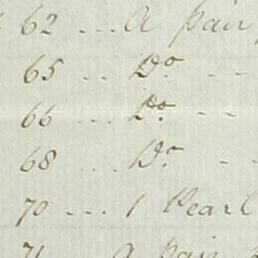 62 ... A pair
65 .. Do - -
66 ... Do - -
68 ... Do - -
70 --- 1 Pearl
71 A pair